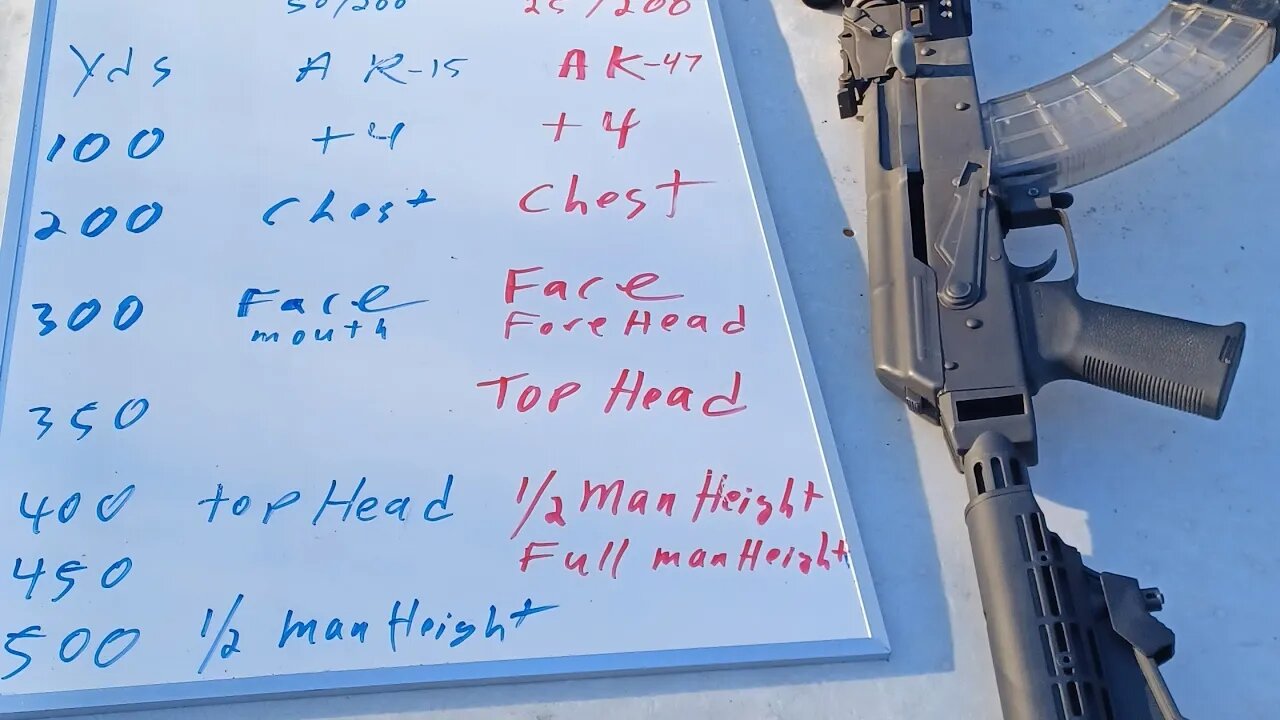 50/200 25/200
Yds AR-15 AK-47
100 +4 +4
200 Chest Chest
300 Face Face
mouth ForeHead
350 Top Head
400 top Head 1/2 Man Height
450 Full man Height
500 1/2 man Height